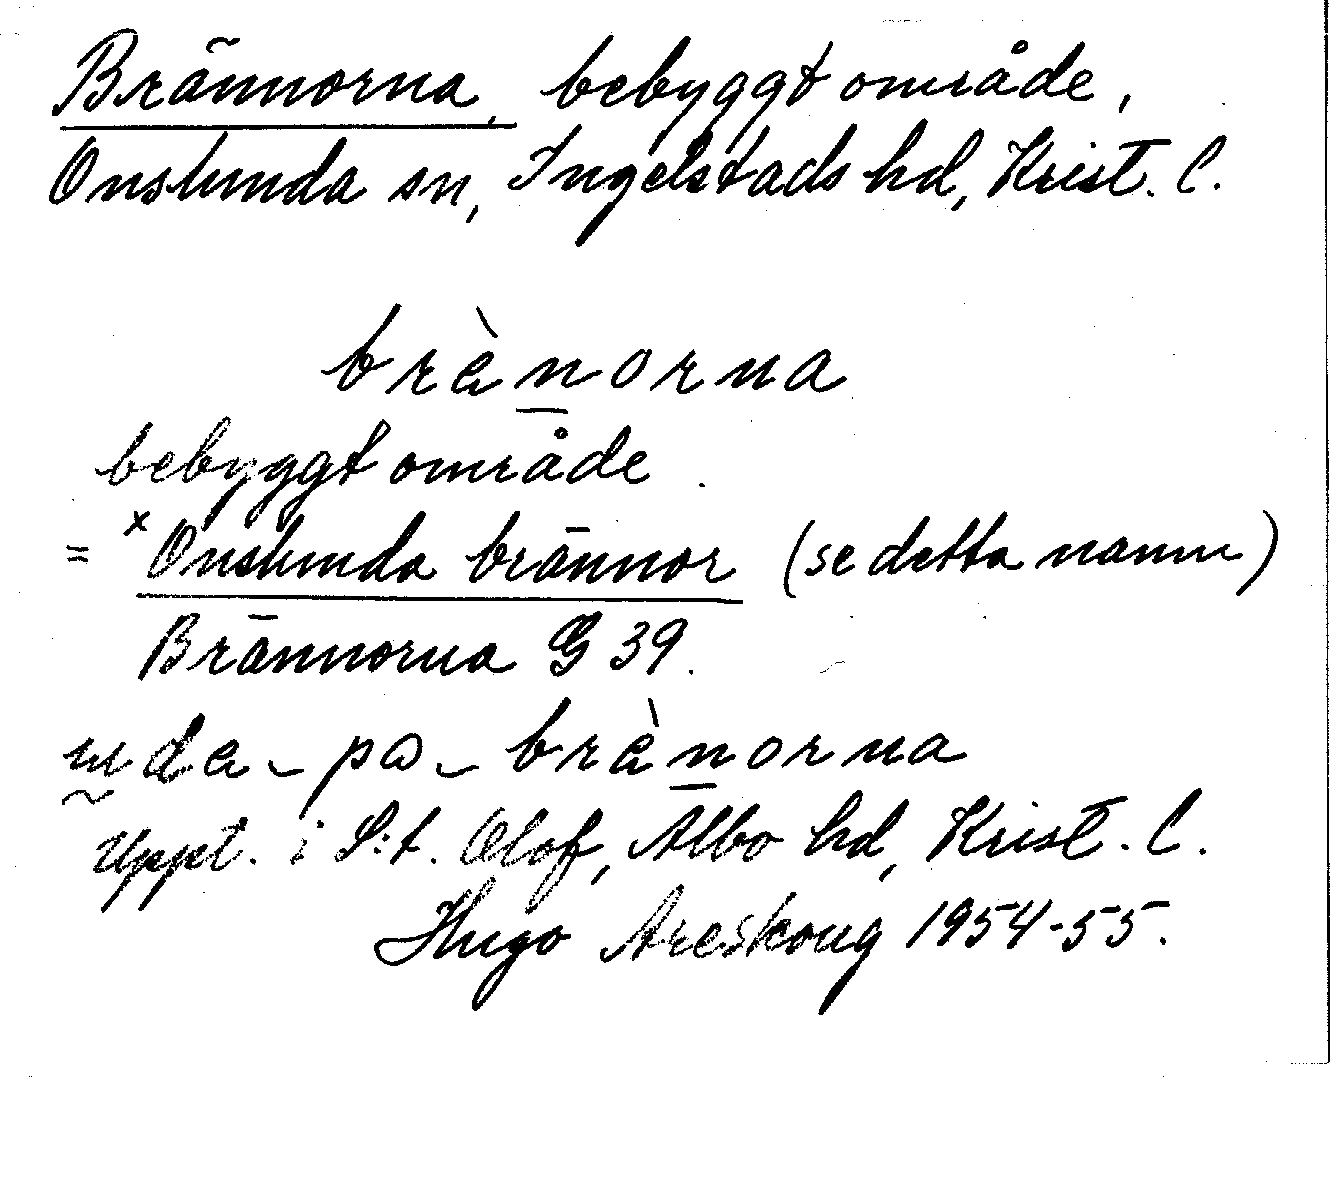 Brännorna, bebyggt område,
Onslunda sn, Ingelstads hd, Krist. l.
brànorna
bebyggt område.
= ˣOnslunda brännor (se detta namn)
Brännorna G 39.
pa brànorna
Uppt. i S:t. Olof, Albo hd, Krist. l.
Hugo Areskoug 1954-55.